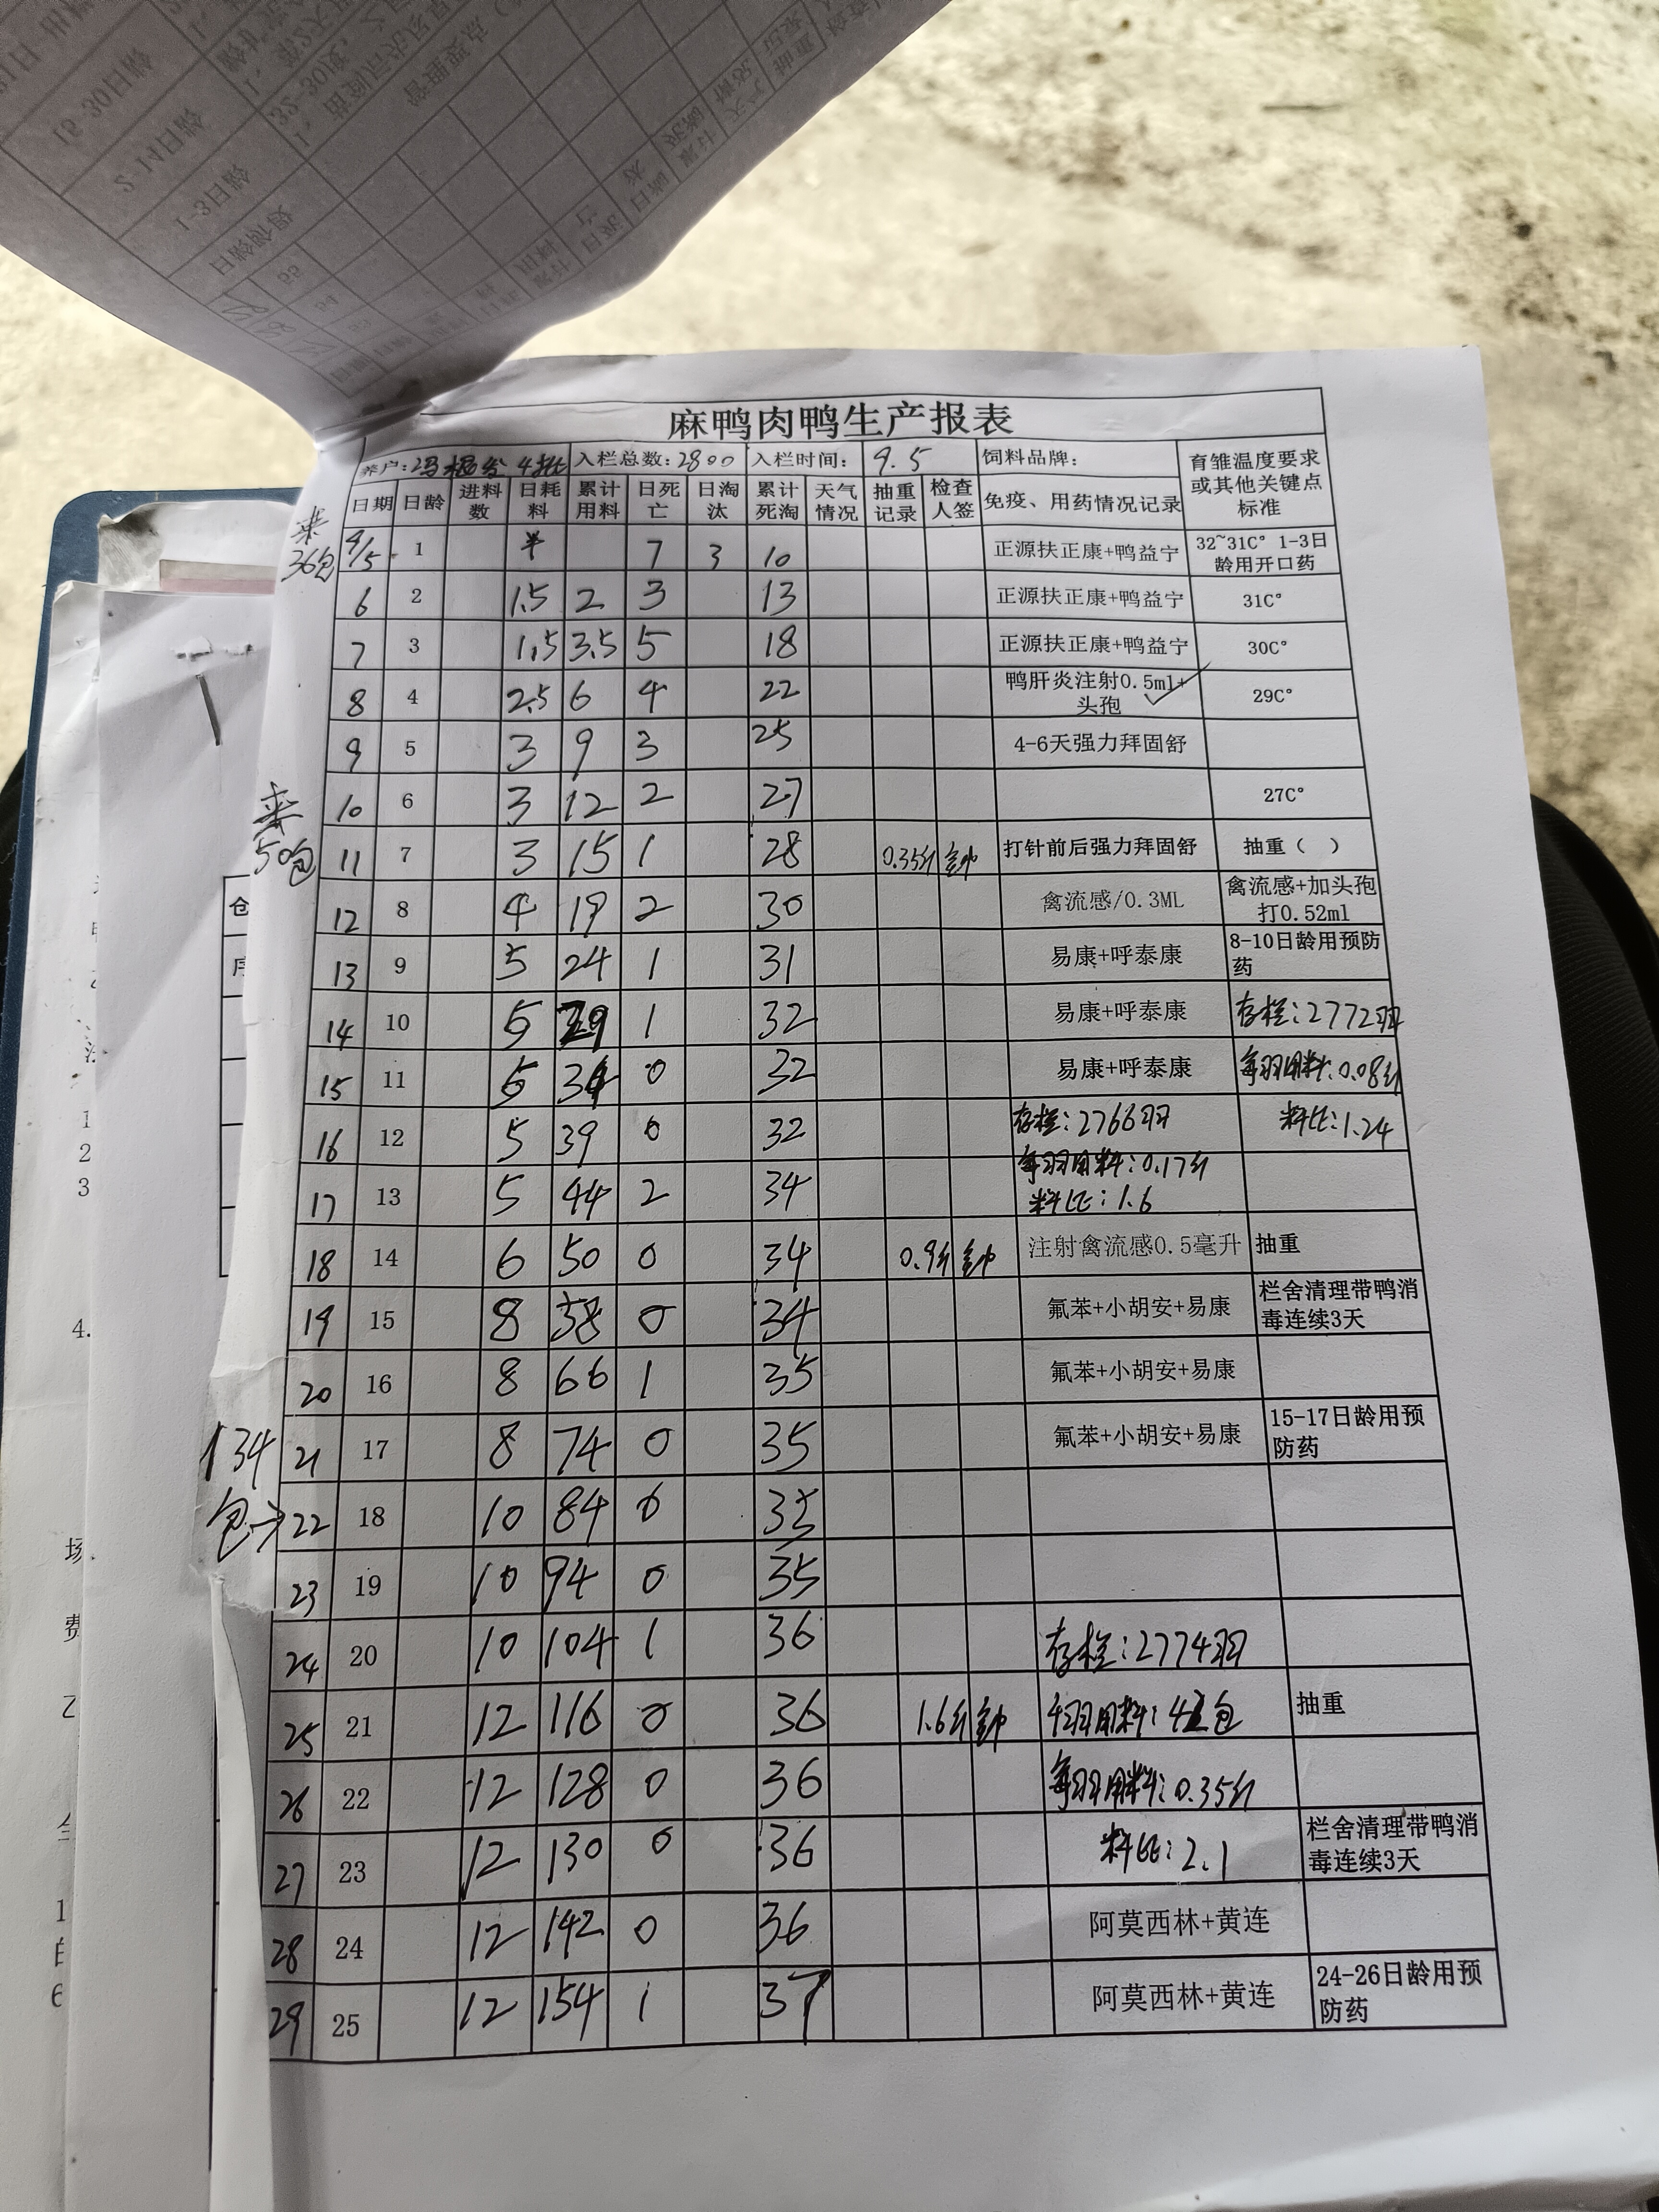 麻鸭肉鸭生产报表
养户: 4批 入栏总数:2800 入栏时间: 9.5 饲料品牌: 育雏温度要求或其他关键点标准
日期 日龄 进料数 日耗料 累计用料 日死亡 日淘汰 累计死淘 天气情况 抽重记录 检查人签 免疫、用药情况记录
来36包
9/5 1 半 7 3 10 正源扶正康+鸭益宁 32~31C° 1-3日龄用开口药
6 2 1.5 2 3 13 正源扶正康+鸭益宁 31C°
7 3 1.5 3.5 5 18 正源扶正康+鸭益宁 30C°
8 4 2.5 6 4 22 鸭肝炎注射0.5ml+头孢 29C°
9 5 3 9 3 25 4-6天强力拜固舒
来50包
10 6 3 12 2 27 27C°
11 7 3 15 1 28 0.35斤 打针前后强力拜固舒 抽重（ ）
12 8 4 19 2 30 禽流感/0.3ML 禽流感+加头孢打0.52ml
13 9 5 24 1 31 易康+呼泰康 8-10日龄用预防药
14 10 5 29 1 32 易康+呼泰康 存栏:2772羽
15 11 5 34 0 32 易康+呼泰康 每羽用料:0.08斤
16 12 5 39 0 32 存栏:2766羽 料比:1.24
每羽用料:0.17斤
17 13 5 44 2 34 料比:1.6
18 14 6 50 0 34 0.9斤 注射禽流感0.5毫升 抽重
19 15 8 58 0 34 氟苯+小胡安+易康 栏舍清理带鸭消毒连续3天
20 16 8 66 1 35 氟苯+小胡安+易康
134包→
21 17 8 74 0 35 氟苯+小胡安+易康 15-17日龄用预防药
22 18 10 84 0 35
23 19 10 94 0 35
24 20 10 104 1 36 存栏:2774羽
25 21 12 116 0 36 1.6斤 千羽用料: 包 抽重
26 22 12 128 0 36 每羽用料:0.35斤
27 23 12 130 0 36 料比:2.1 栏舍清理带鸭消毒连续3天
28 24 12 142 0 36 阿莫西林+黄连
29 25 12 154 1 37 阿莫西林+黄连 24-26日龄用预防药